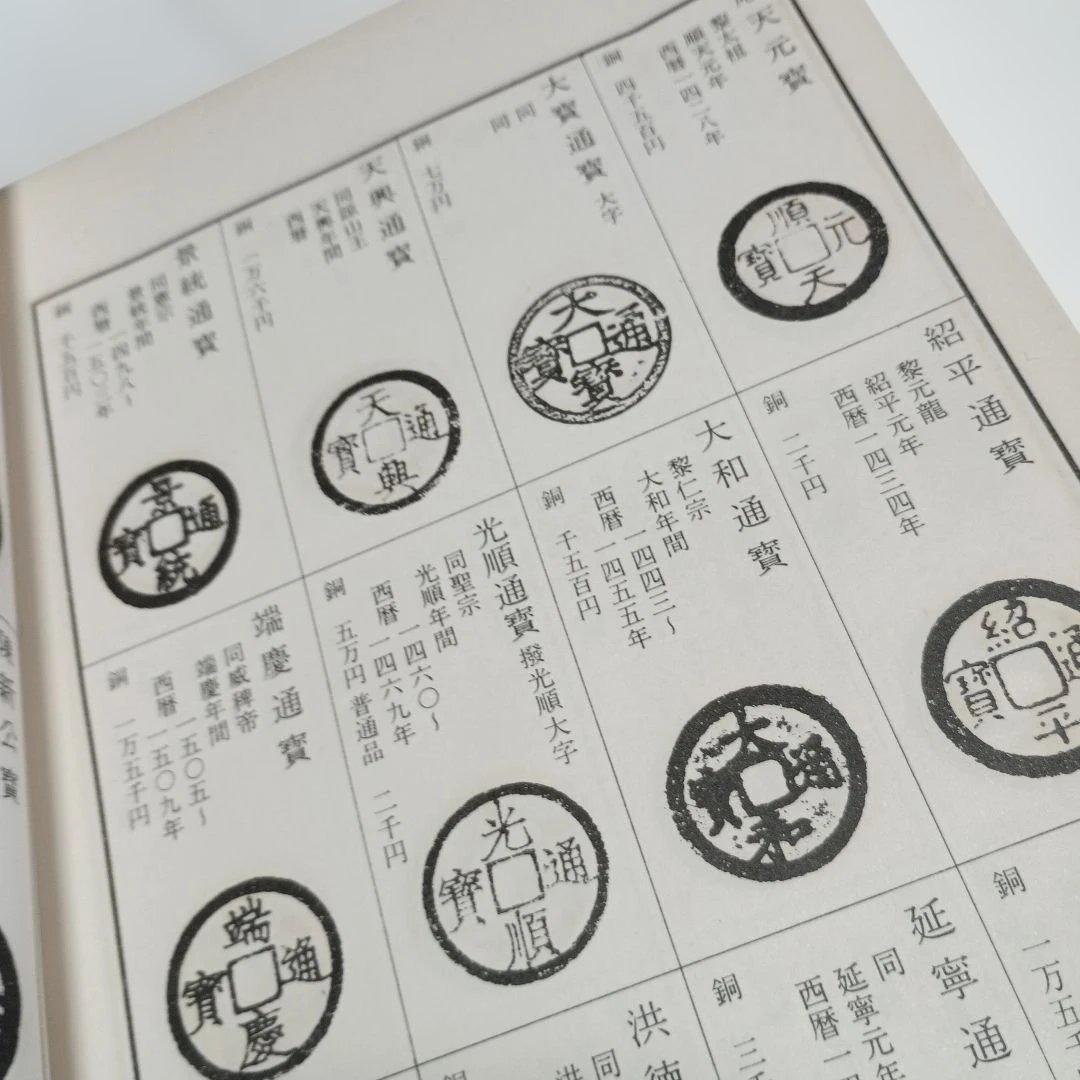 天元寶
黎太祖
順天元年
西暦一四二八年
銅 四千五百円
順天元寶
大寶通寶 大字
同
同
銅 七万円
大寶通寶
天興通寶
同諒山王
天興年間
西暦
銅 一万六千円
天興通寶
景統通寶
同憲宗
景統年間
一四九八～
西暦一五〇三年
銅 千五百円
景統通寶
紹平通寶
黎元龍
紹平元年
西暦一四三四年
銅 二千円
紹平通寶
大和通寶
黎仁宗
大和年間
一四四三～
西暦一四五五年
銅 千五百円
大和通寶
光順通寶 撥光順大字
同聖宗
光順年間
一四六〇～
西暦一四六九年
銅 五万円 普通品 二千円
光順通寶
端慶通寶
同威穆帝
端慶年間
一五〇五～
西暦一五〇九年
銅 一万五千円
端慶通寶
銅 一万五千
延寧通
同
延寧元年
西暦一四
銅 三
洪徳
同
洪
銅